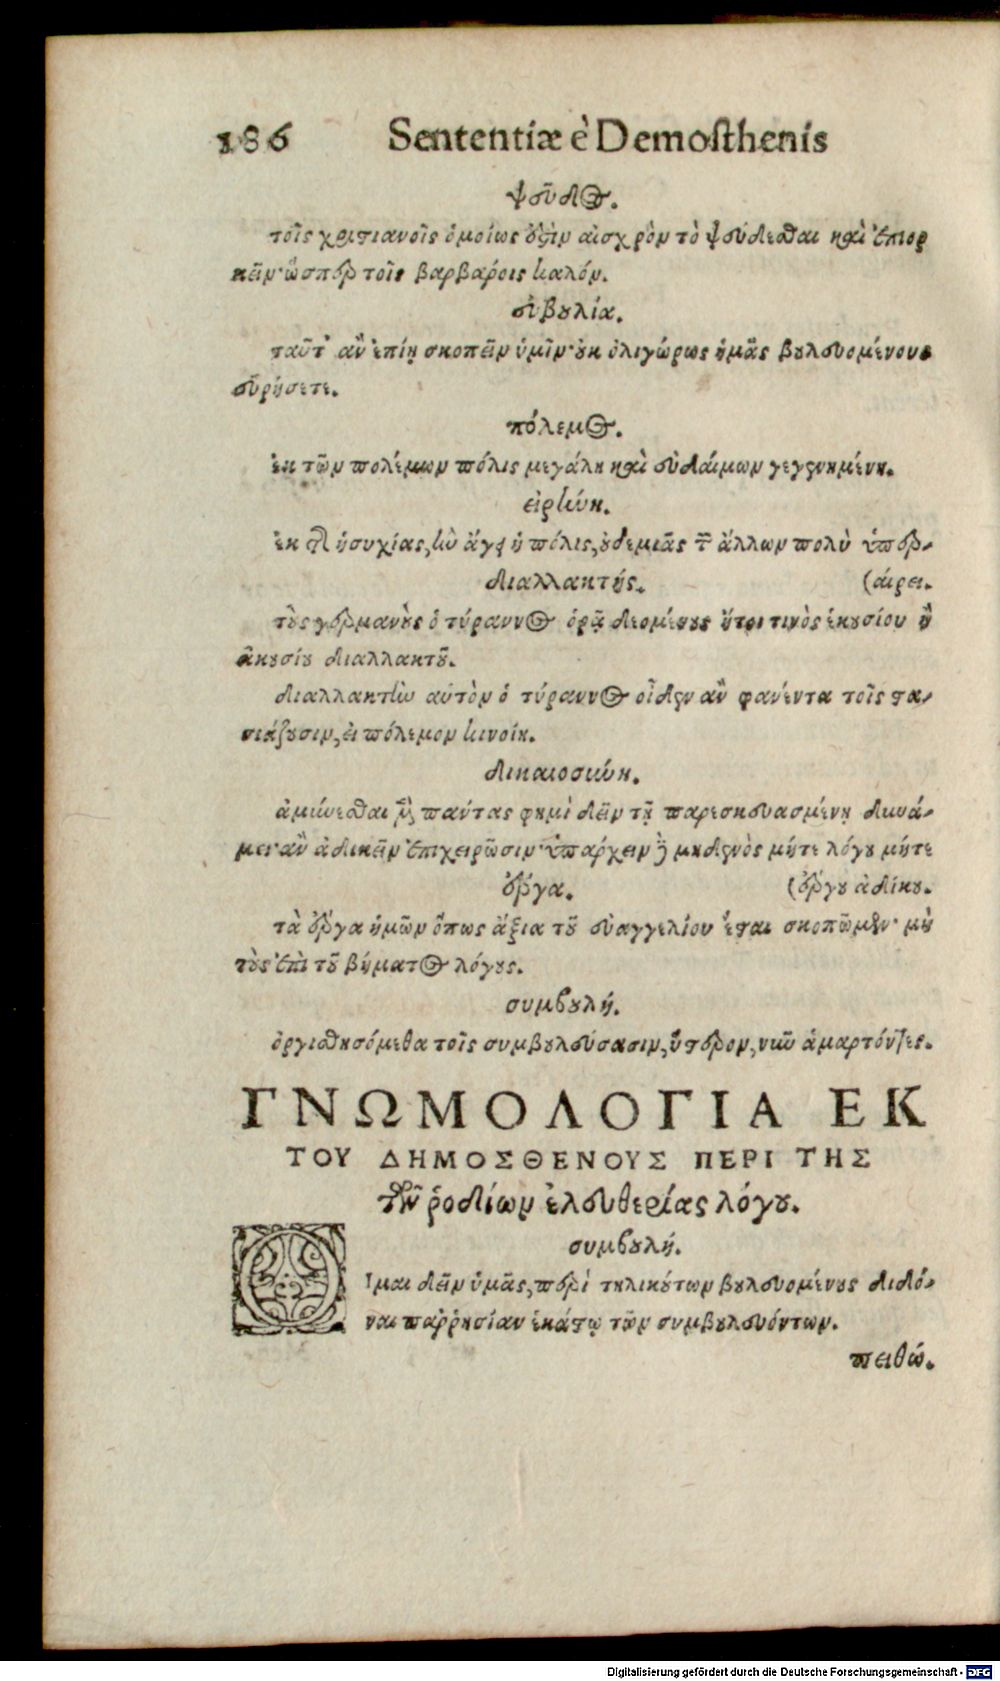 186 Sententiæ è Demosthenis
ψεῦδος.
τοῖς χριστιανοῖς ὁμοίως ἐστὶν αἰσχρὸν τὸ ψεύδεσθαι καὶ ἐπιορ
κεῖν· ὥσπερ τοῖς βαρβάροις καλόν.
εὐβουλία.
ταῦτ' ἂν ἐπίῃ σκοπεῖν ὑμῖν· οὐκ ὀλιγώρως ἡμᾶς βουλευομένους
εὑρήσετε.
πόλεμος.
ἐκ τῶν πολέμων πόλις μεγάλη καὶ εὐδαίμων γεγενημένη.
εἰρήνη.
ἐκ τῆς ἡσυχίας, ἣν ἄγει ἡ πόλις, οὐδεμιᾶς τῶν ἄλλων πολὺ ὑπερ-
διαλλακτής. (αίρει.
τοὺς γερμανοὺς ὁ τύραννος ὁρᾷ δεομένους ἤτοι τινὸς ἑκουσίου ἢ
ἀκουσίου διαλλακτοῦ.
διαλλακτὴν αὐτὸν ὁ τύραννος οἶδεν ἂν φανέντα τοῖς στα-
σιάζουσιν, εἰ πόλεμον κινοίη.
δικαιοσύνη.
ἀμύνεσθαι μὲν πάντας φημὶ δεῖν τῇ παρεσκευασμένῃ δυνά-
μει· ἂν ἀδικεῖν ἐπιχειρῶσιν· ὑπάρχειν δὲ μηδενὸς μήτε λόγου μήτε
ἔργα. (ἔργου ἀδίκου.
τὰ ἔργα ἡμῶν ὅπως ἄξια τοῦ εὐαγγελίου ἔσται σκοπῶμεν· μὴ
τοὺς ἐπὶ τοῦ βήματος λόγους.
συμβουλή.
ὀργισθησόμεθα τοῖς συμβουλεύσασιν, ὕστερον, νῦν ἁμαρτόντες.
ΓΝΩΜΟΛΟΓΙΑ ΕΚ
ΤΟΥ ΔΗΜΟΣΘΕΝΟΥΣ ΠΕΡΙ ΤΗΣ
τῶν ῥοδίων ἐλευθερίας λόγου.
συμβουλή.
Οἶμαι δεῖν ὑμᾶς, περὶ τηλικούτων βουλευομένους διδό-
ναι παῤῥησίαν ἑκάστῳ τῶν συμβουλευόντων.
πειθώ.
Digitalisierung gefördert durch die Deutsche Forschungsgemeinschaft - DFG